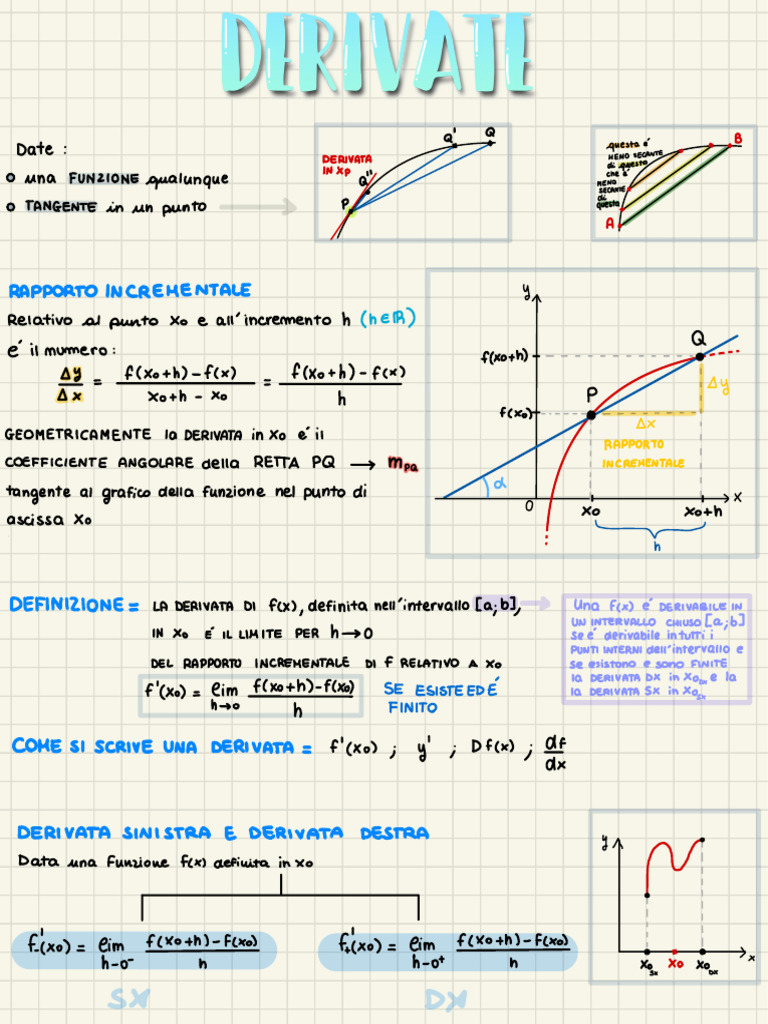 DERIVATE
Date :
o una FUNZIONE qualunque
o TANGENTE in un punto
DERIVATA
IN xp
P
Q''
Q'
Q
questa è
MENO SECANTE
di questa
che è
MENO
SECANTE
di
questa
A
B
RAPPORTO INCREMENTALE
Relativo al punto x0 e all'incremento h (h∈ℝ)
é il numero:
Δy/Δx = (f(x0+h)-f(x))/(x0+h - x0) = (f(x0+h)-f(x))/h
GEOMETRICAMENTE la DERIVATA in x0 é il
COEFFICIENTE ANGOLARE della RETTA PQ → mPQ
tangente al grafico della funzione nel punto di
ascissa x0
y
f(x0+h)
f(x0)
P
Q
Δy
Δx
RAPPORTO
INCREMENTALE
α
0
x0
x0+h
x
h
DEFINIZIONE = LA DERIVATA DI f(x), definita nell'intervallo [a;b],
IN x0 É IL LIMITE PER h→0
DEL RAPPORTO INCREMENTALE DI f RELATIVO A x0
f'(x0) = lim h→0 (f(x0+h)-f(x0))/h SE ESISTE ED É
FINITO
Una f(x) é DERIVABILE IN
UN INTERVALLO CHIUSO [a;b]
se é derivabile in tutti i
PUNTI INTERNI dell'intervallo e
se esistono e sono FINITE
la DERIVATA DX in x0DX e la
la DERIVATA SX in x0SX
COME SI SCRIVE UNA DERIVATA = f'(x0) ; y' ; Df(x) ; df/dx
DERIVATA SINISTRA E DERIVATA DESTRA
Data una funzione f(x) definita in x0
f'-(x0) = lim h→0- (f(x0+h)-f(x0))/h
f'+(x0) = lim h→0+ (f(x0+h)-f(x0))/h
SX
DX
y
x0SX
x0
x0DX
x